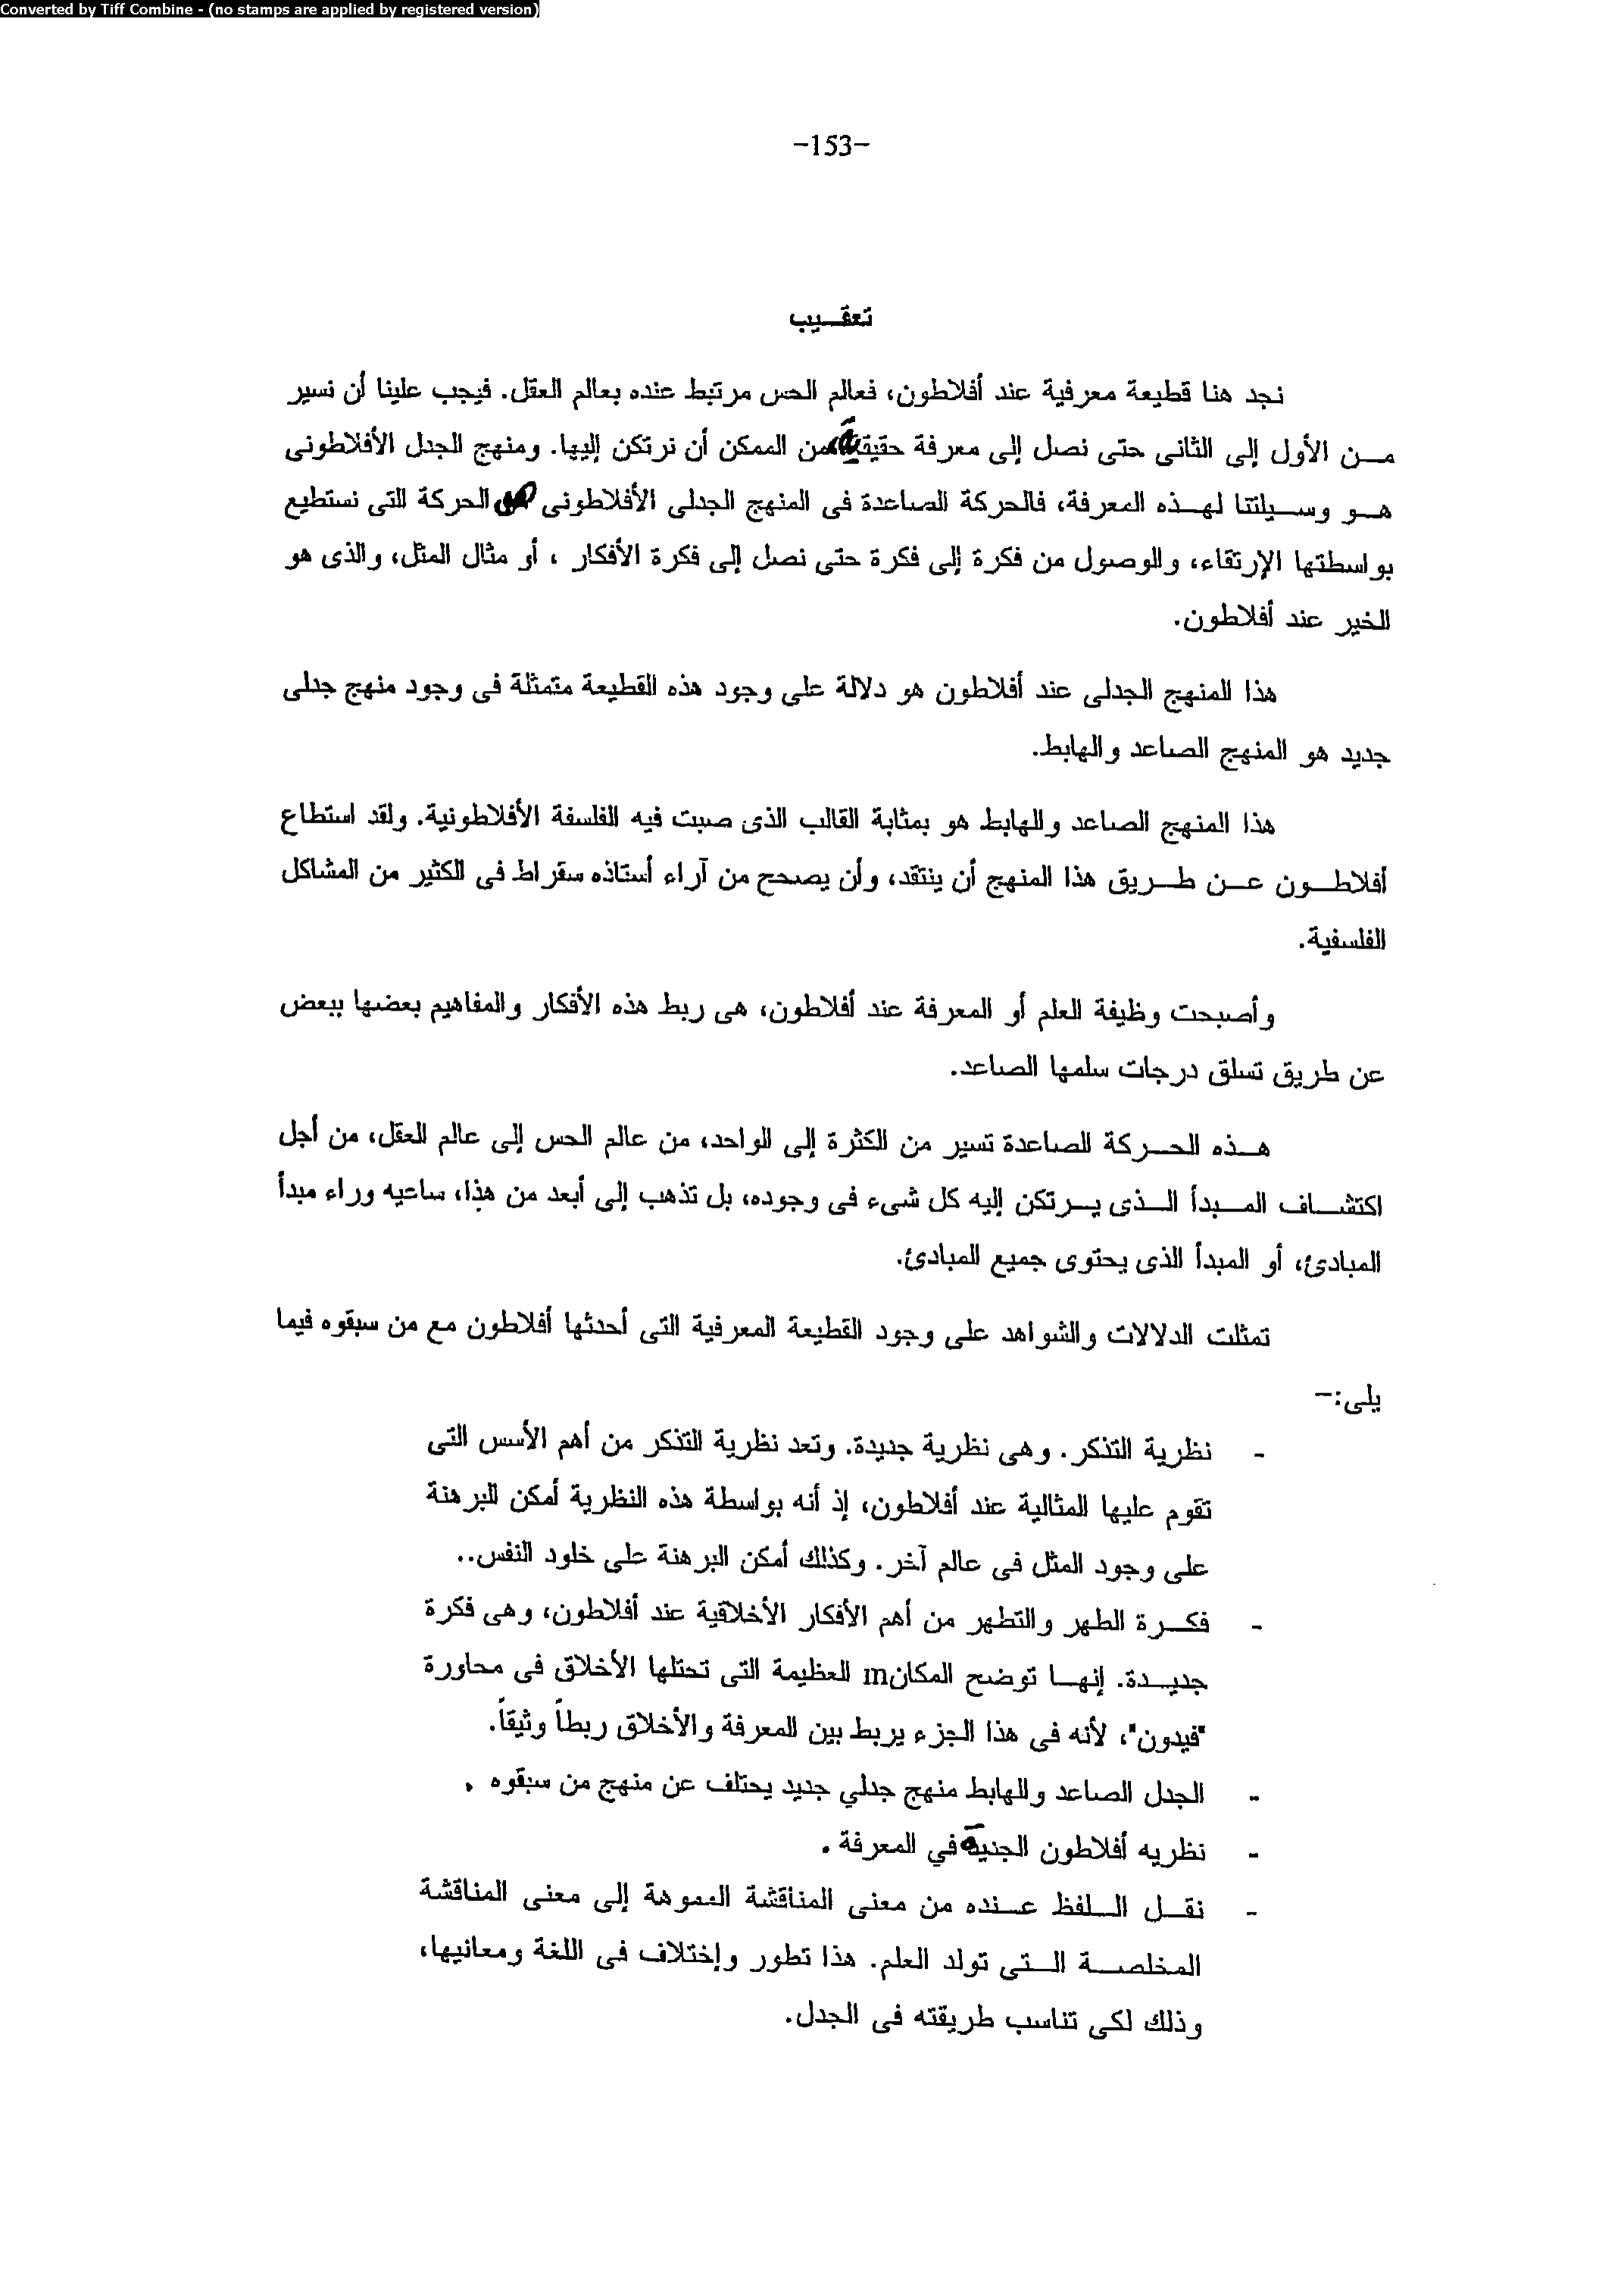 Converted by Tiff Combine - (no stamps are applied by registered version)
-153-
تعقيب
نجد هنا قطيعة معرفية عند أفلاطون، فعالم الحس مرتبط عنده بعالم العقل. فيجب علينا أن نسير
من الأول إلى الثانى حتى نصل إلى معرفة حقيقية، من الممكن أن نرتكن إليها. ومنهج الجدل الأفلاطونى
هو وسيلتنا لهذه المعرفة، فالحركة الصاعدة فى المنهج الجدلى الأفلاطونى هى الحركة التى نستطيع
بواسطتها الإرتقاء، والوصول من فكرة إلى فكرة حتى نصل إلى فكرة الأفكار ، أو مثال المثل، والذى هو
الخير عند أفلاطون.
هذا المنهج الجدلى عند أفلاطون هو دلالة على وجود هذه القطيعة متمثلة فى وجود منهج جدلى
جديد هو المنهج الصاعد والهابط.
هذا المنهج الصاعد والهابط هو بمثابة القالب الذى صبت فيه الفلسفة الأفلاطونية. ولقد استطاع
أفلاطون عن طريق هذا المنهج أن ينتقد، وأن يصحح من آراء أستاذه سقراط فى الكثير من المشاكل
الفلسفية.
وأصبحت وظيفة العلم أو المعرفة عند أفلاطون، هى ربط هذه الأفكار والمفاهيم بعضها ببعض
عن طريق تسلق درجات سلمها الصاعد.
هذه الحركة الصاعدة تسير من الكثرة إلى الواحد، من عالم الحس إلى عالم العقل، من أجل
اكتشاف المبدأ الذى يرتكن إليه كل شىء فى وجوده، بل تذهب إلى أبعد من هذا، ساعيه وراء مبدأ
المبادئ، أو المبدأ الذى يحتوى جميع المبادئ.
تمثلت الدلالات والشواهد على وجود القطيعة المعرفية التى أحدثها أفلاطون مع من سبقوه فيما
يلى:-
- نظرية التذكر. وهى نظرية جديدة. وتعد نظرية التذكر من أهم الأسس التى
تقوم عليها المثالية عند أفلاطون، إذ أنه بواسطة هذه النظرية أمكن البرهنة
على وجود المثل فى عالم آخر. وكذلك أمكن البرهنة على خلود النفس..
- فكرة الطهر والتطهر من أهم الأفكار الأخلاقية عند أفلاطون، وهى فكرة
جديدة. إنها توضح المكانm العظيمة التى تحتلها الأخلاق فى محاورة
"فيدون"، لأنه فى هذا الجزء يربط بين المعرفة والأخلاق ربطاً وثيقاً.
- الجدل الصاعد والهابط منهج جدلي جديد يحتلف عن منهج من سبقوه .
- نظريه أفلاطون الجديدة في المعرفة .
- نقل اللفظ عنده من معنى المناقشة المموهة إلى معنى المناقشة
المخلصة التى تولد العلم. هذا تطور وإختلاف فى اللغة ومعانيها،
وذلك لكى تناسب طريقته فى الجدل.